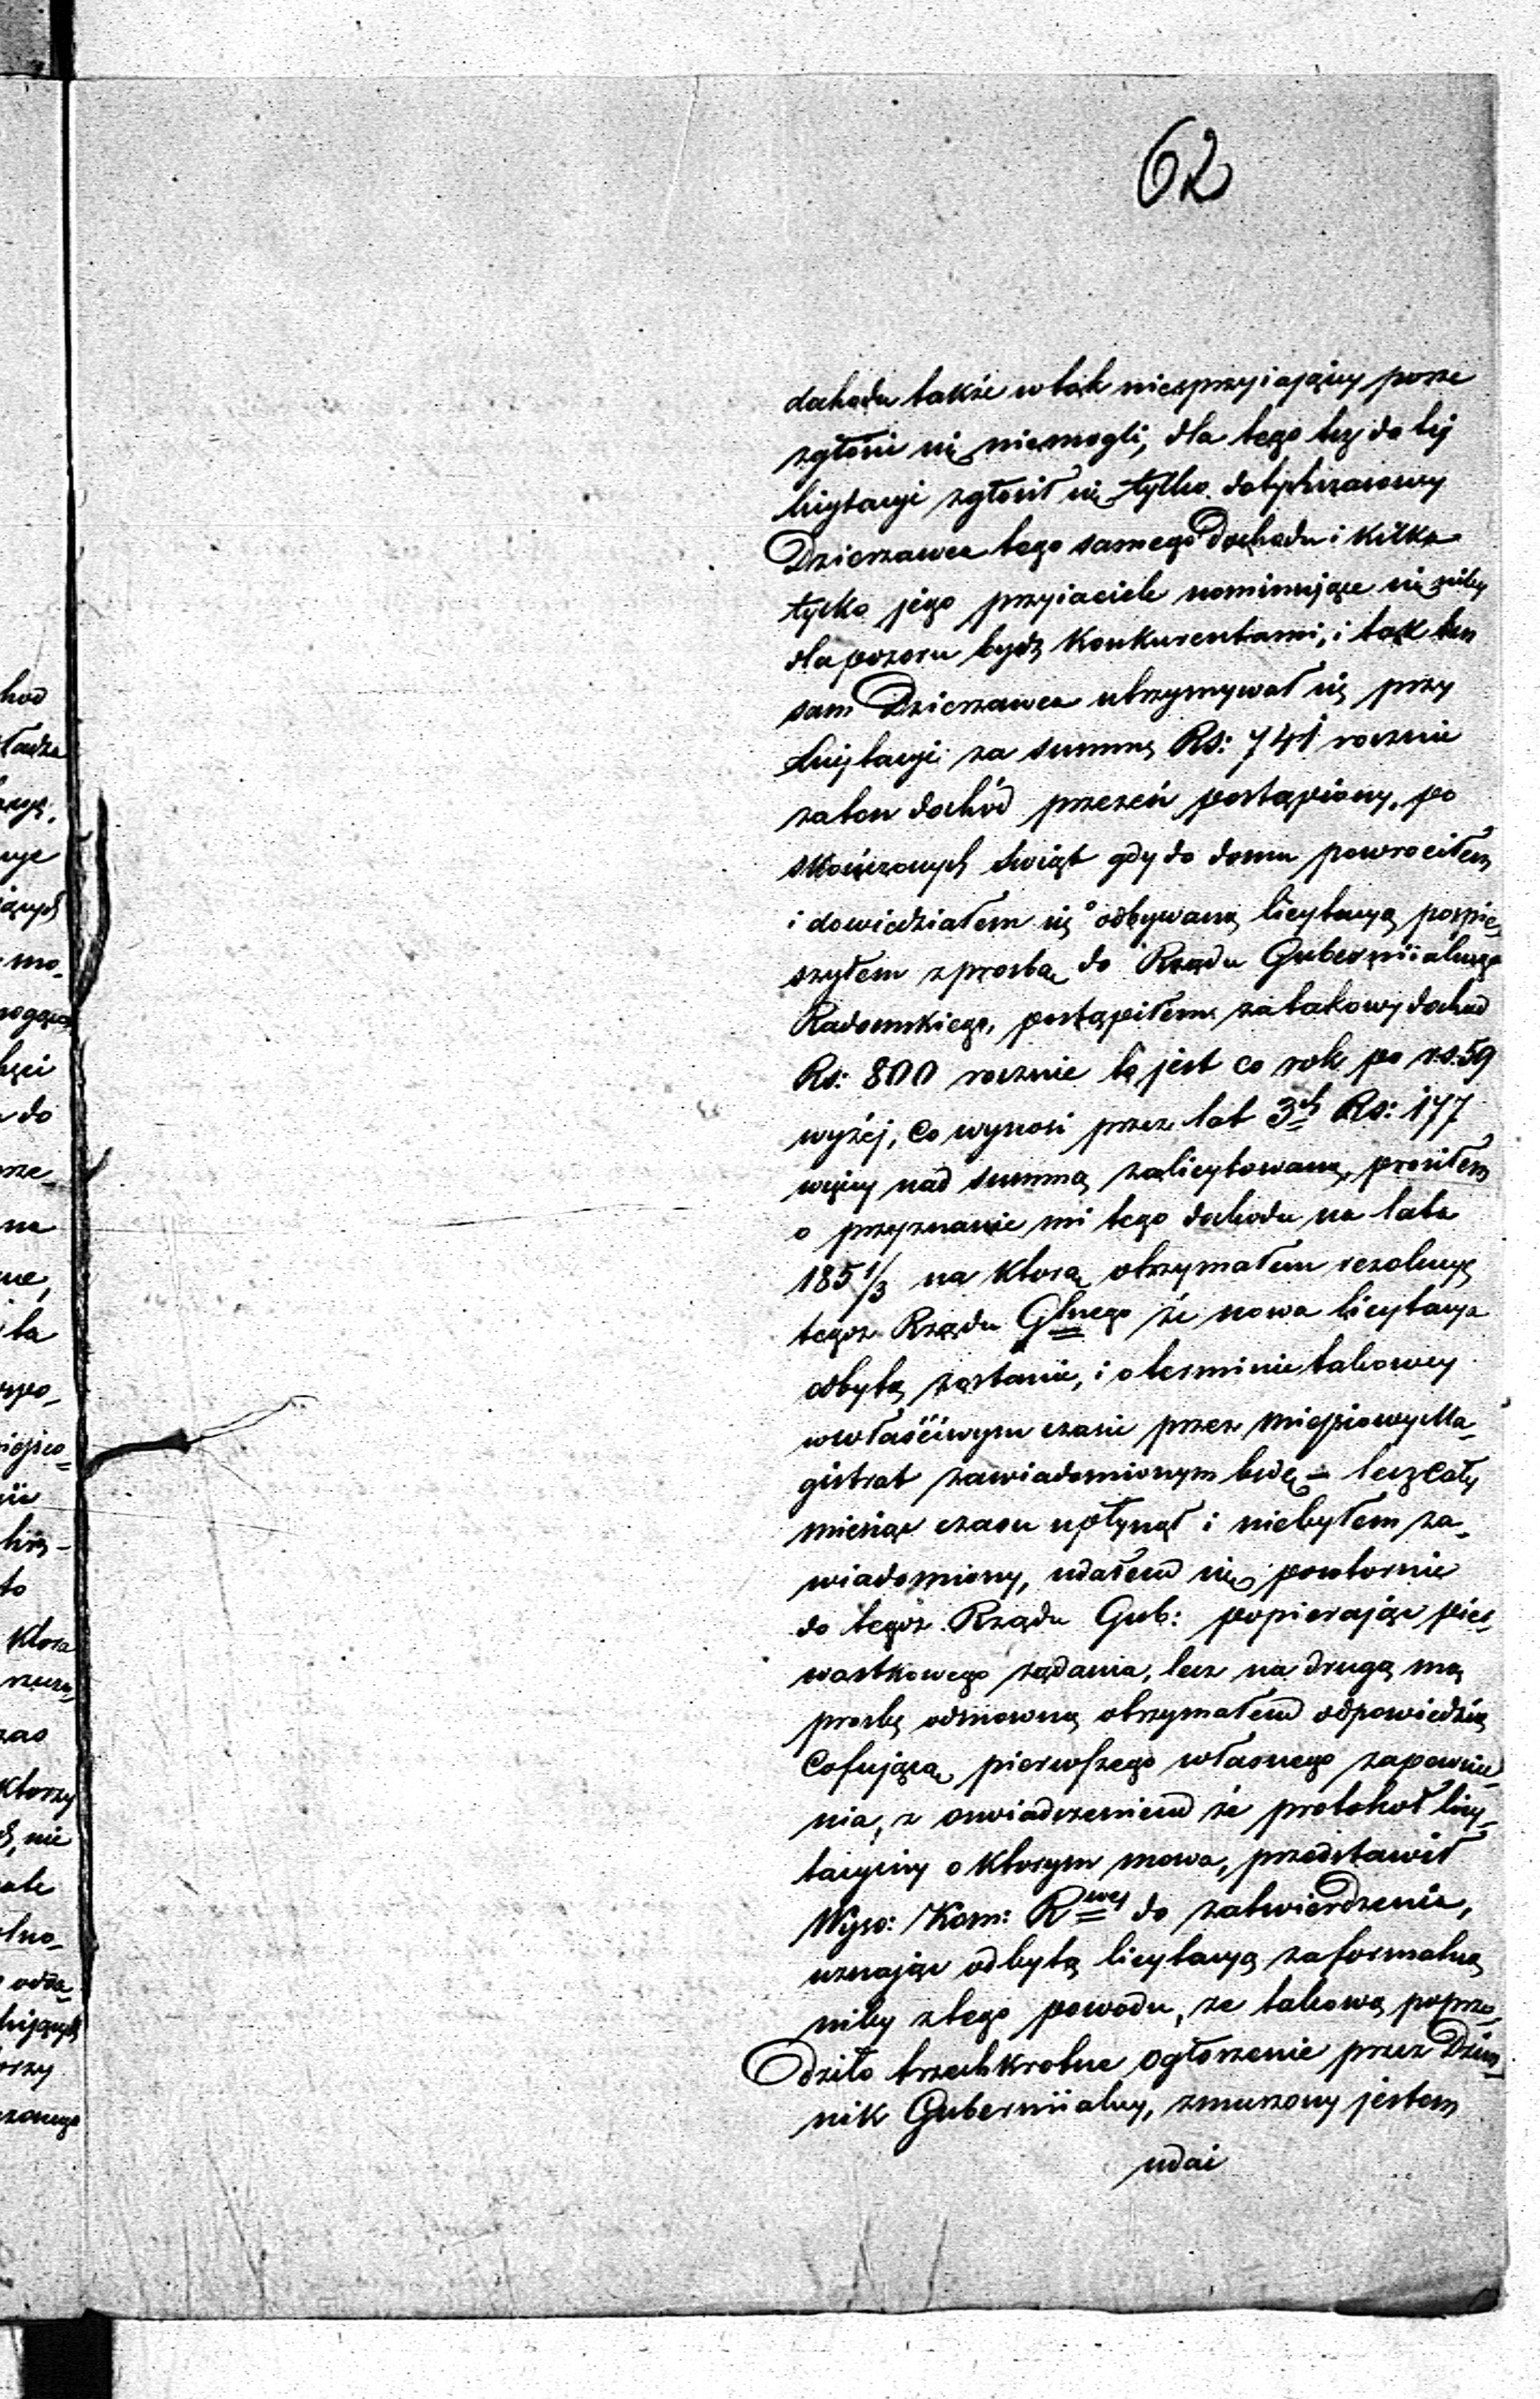 62
dochodu także w tak niesprzyiającey porze
zgłosić się niemogli, dla tego też do tej
licytacyi zgłosił się tylko dotychczasowy
Dzierzawca tego samego Dochodu i kilka
tylko jego przyiaciele mieniące się niby
dla pozoru bydź Konkurentami, i tak ten
sam Dzierzawca utrzymywał się przy
Licytacyi za summę Rs: 741 rocznie
za ten dochód przezeń postąpiony, po
skończonych świąt gdy do domu powrociłem
i dowiedziałem się o odbywaną licytacyą pospie„
szyłem z prosbą do Rządu Guberniialnego
Radomskiego, postąpiłem za takowy dochod
Rs: 800 rocznie to jest co rok po r.s. 59
wyżej, co wynosi przez lat 3ch Rs: 177
więcy nad summą zalicytowaną, prosiłem
o przyznanie mi tego dochodu na lata
185 1/3 na ktorą otrzymałem rezolucyę
tegoż Rządu Glnego że nowa licytacya
odbytą zostanie, i o terminie takowey
w właściwym czasie przez mieyscowy Ma„
gistrat zawiadomionym będę – lecz cały
miesiąc czasu upłynął i niebyłem za„
wiadomiony, udałem się powtornie
do tegoż Rządu Gub: popierając pier„
wastkowego żądania, lecz na drugą mą
prosbę odmowną otrzymałem odpowiedzią
Cofującą pierwszego własnego zapewnie„
nia, z oswiadczeniem że protokoł licy„
tacyiny o ktorym mowa, przedstawił
Wyso: Kom: Rwey do zatwierdzenia,
uznając odbytą licytacyą za formalną
niby z tego powodu, że takową poprze„
dziło trzechkrotne ogłoszenie przez Dzien„
nik Guberniialny, zmuszony jestem
udać
hod
mo„
do
na
ta
to
Ktora
Ktorzy
nie